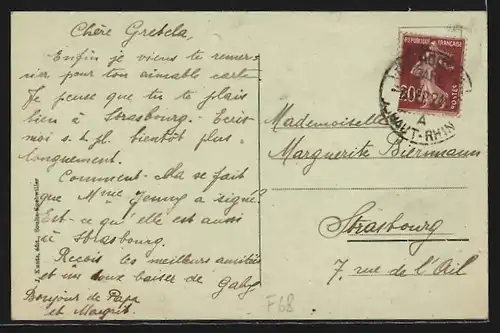 Chère Grebela,
Enfin je viens te remer-
cier pour ton aimable carte
Je pense que tu te plais
bien à Strasbourg. - Ecris
moi s. t. pl. bientôt plus
longuement.
Comment cela se fait
que Mme Jenny a signé?
Est-ce qu'elle est aussi
à Strasbourg.
Reçois les meilleurs amitiés
et un doux baiser de Gaby
Bonjour de Papa
et Margrit.
REPUBLIQUE FRANÇAISE
POSTES
A
HAUT-RHIN
Mademoiselle
Marguerite Biermann
Strasbourg
7 rue de l'Ail
F68